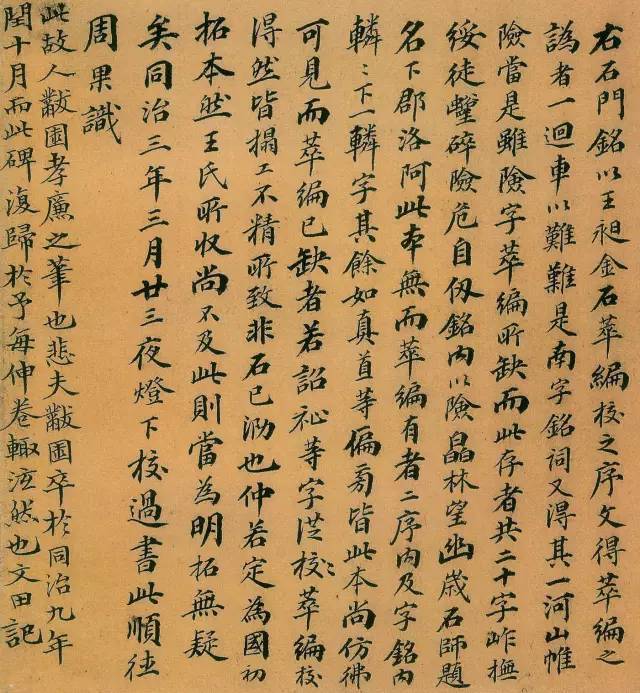 右石門銘以王昶金石萃編校之序文得萃編之
譌者一迴車以難難是南字銘詞又得其一河山帷
險當是雖險字萃編所缺而此存者共二十字岝橅
綏徒壍碎險危自仭銘內以險晶林望幽歲石師題
名下郡洛阿此本無而萃編有者二序內及字銘內
轔〻下一轔字其餘如真首等偏旁皆此本尚仿彿
可見而萃編已缺者若詔祉等字洪校〻萃編校
得然皆搨工不精所致非石已泐也仲若定為國初
拓本然王氏所收尚不及此則當為明拓無疑
矣同治三年三月廿三夜燈下校過書此順德
周果識
此故人黻園孝廉之筆也悲夫黻園卒於同治九年
閏十月而此碑復歸於予每伸卷輙泫然也文田記